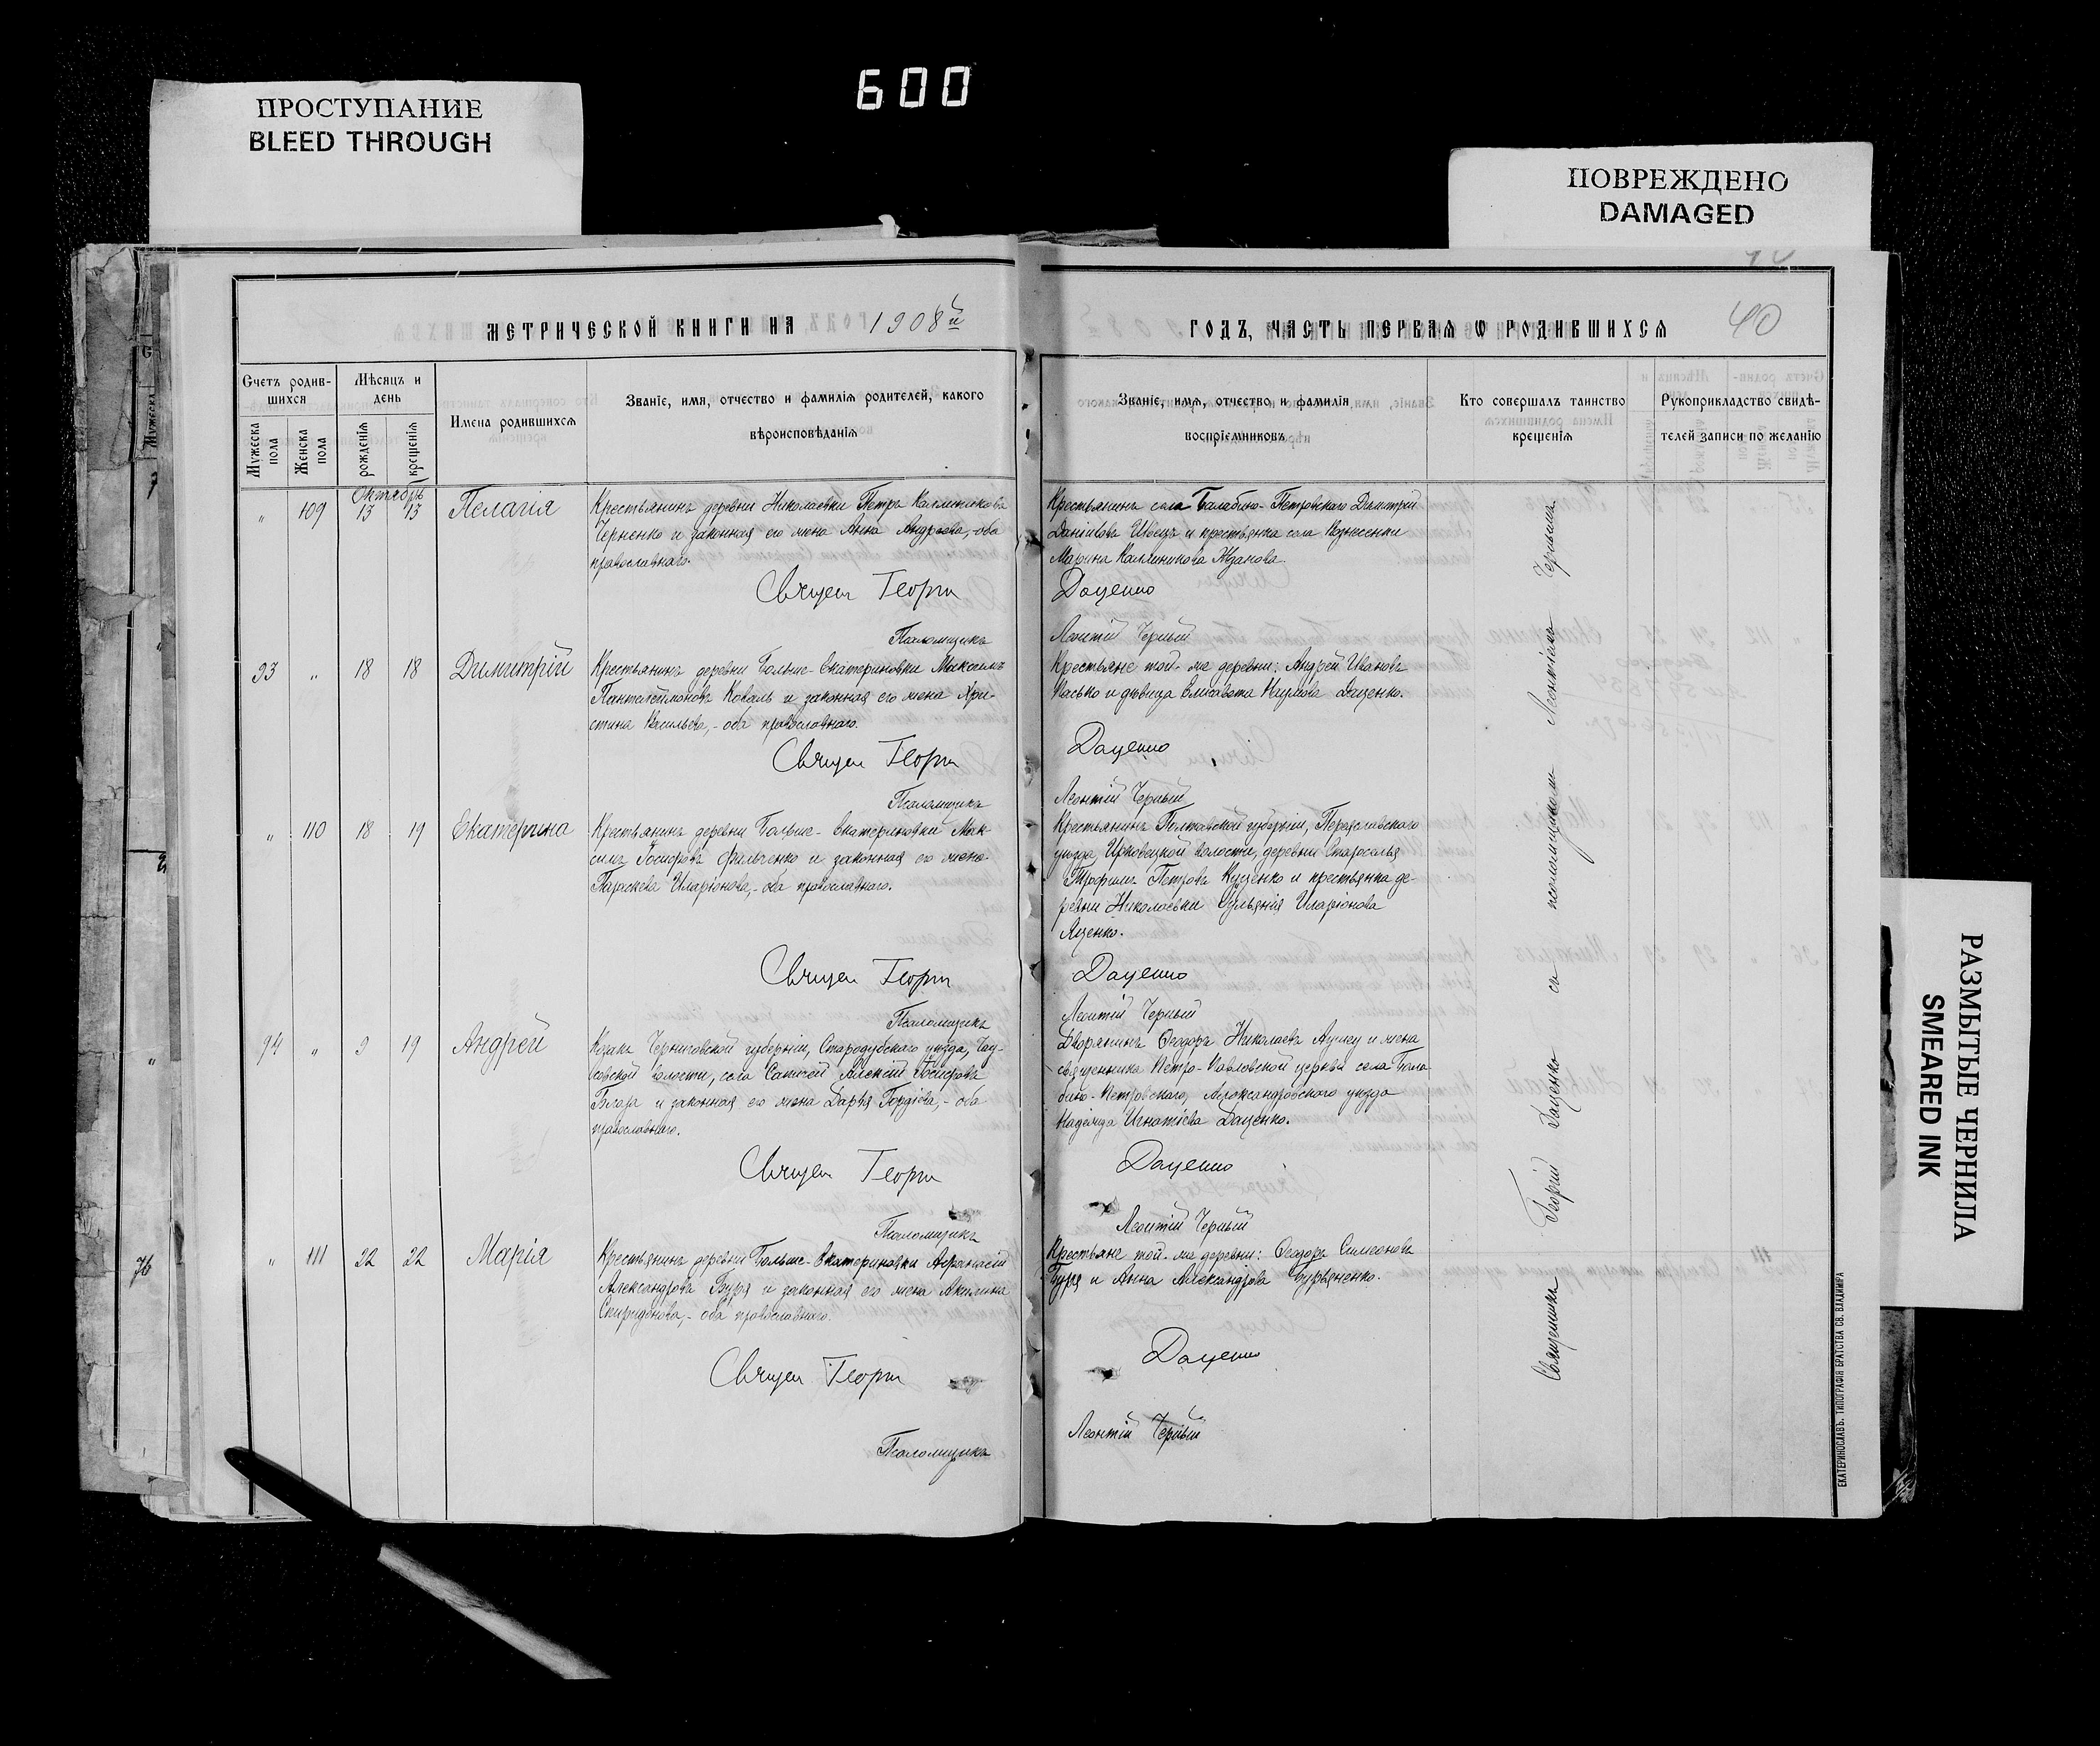 600
ПРОСТУПАНИЕ
BLEED THROUGH
ПОВРЕЖДЕНО
DAMAGED
РАЗМЫТЫЕ ЧЕРНИЛА
SMEARED INK
МЕТРИЧЕСКОЙ КНИГИ НА 1908й
Счетъ родившихся
Мужеска пола
Женска пола
Мѣсяцъ и день
рожденія
крещенія
Имена родившихся
Званіе, имя, отчество и фамилія родителей, какого
вѣроисповѣданія
Октябрь
" 109 13 13 Пелагія
Крестьянинъ деревни Николаевки Петръ Каллиниковъ
Черненко и законная его жена Анна Андреева, оба
православнаго.
Священ Георгій
Псаломщикъ
93 " 18 18 Димитрій
Крестьянинъ деревни Больше-Екатериновки Максимъ
Пантелеймоновъ Коваль и законная его жена Хри-
стина Васильева,- оба православнаго.
Священ Георгій
Псаломщикъ
" 110 18 19 Екатерина
Крестьянинъ деревни Больше-Екатериновки Мак-
симъ Іосифовъ Фильченко и законная его жена
Параскева Иларіонова,- оба православнаго.
Священ Георгій
Псаломщикъ
94 " 9 19 Андрей
Козакъ Черниговской губерніи, Стародубскаго уѣзда,
волости, села Алексій Іосифовъ
и законная его жена Дарья Гордіева,- оба
православнаго.
Священ Георгій
Псаломщикъ
" 111 22 22 Марія
Крестьянинъ деревни Больше-Екатериновки Афанасій
Александровъ Буря и законная его жена Акилина
Спиридонова,- оба православнаго.
Священ Георгій
Псаломщикъ
ГОДЪ, ЧАСТЬ ПЕРВАЯ Ѡ РОДИВШИХСЯ
40
Званіе, имя, отчество и фамилія
воспріемниковъ
Кто совершалъ таинство
крещенія
Рукоприкладство свидѣ-
телей записи по желанію
Крестьянинъ села Балабино-Петровскаго Димитрій
Даніиловъ Швецъ и крестьянка села Вознесенки
Марина Каллиникова Жданова.
Даценко
Леонтій Черный
Крестьяне той-же деревни: Андрей Ивановъ
Касько и дѣвица Елисавета Наумова Даценко.
Даценко
Леонтій Черный
Крестьянинъ Полтавской губерніи, Переяславскаго
уѣзда, Ирклѣевской волости, деревни Староселья
Трофимъ Петровъ Куценко и крестьянка де-
ревни Николаевки Ульянія Иларіонова
Яценко.
Даценко
Леонтій Черный
Дворянинъ Ѳеодоръ Николаевъ и жена
священника Петро-Павловской церкви села Бала-
бино-Петровскаго, Александровскаго уѣзда
Надежда Игнатіева Даценко.
Даценко
Леонтій Черный
Крестьяне той-же деревни: Ѳеодоръ Симеоновъ
Буря и Анна Александрова Бурьяненко.
Даценко
Леонтій Черный
Священникъ Георгій Даценко съ псаломщикомъ Леонтіемъ Чернымъ.
ЕКАТЕРИНОСЛАВЪ. ТИПОГРАФІЯ БРАТСТВА СВ. ВЛАДИМІРА